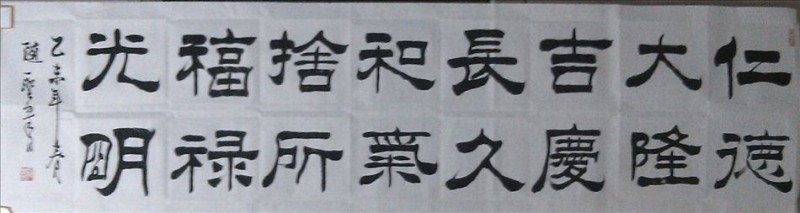 仁德
大隆
吉慶
長久
和氣
捨所
福禄
光明
乙未年